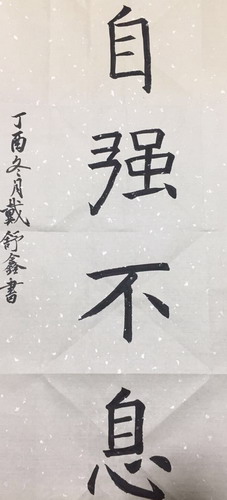 自强不息
丁酉冬月戴舒鑫書